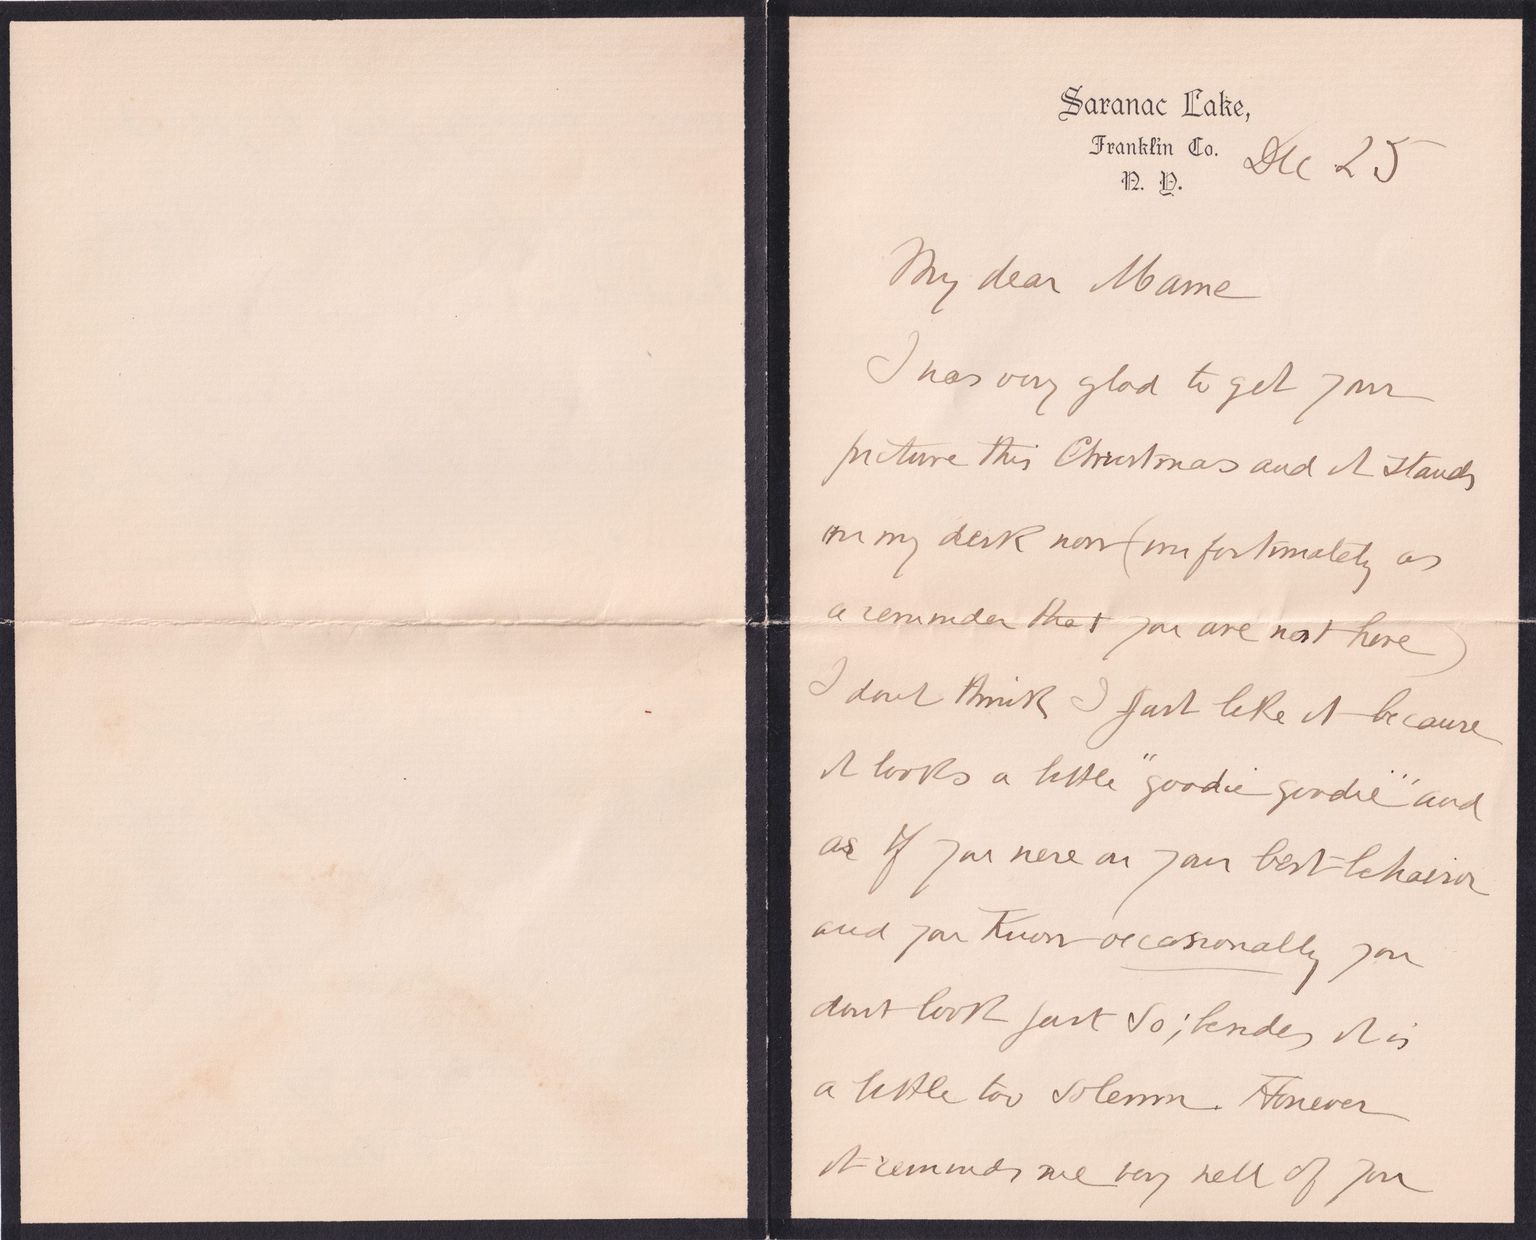 Saranac Lake,
Franklin Co.
N. Y.
Dec 25
My dear Mame
I was very glad to get your
picture this Christmas and it stands
on my desk now (unfortunately as
a reminder that you are not here)
I dont think I just like it because
it looks a little "goodie goodie" and
as if you were on your best behavior
and you know occasionally you
dont look just so; besides it is
a little too solemn. However
it reminds me very well of you